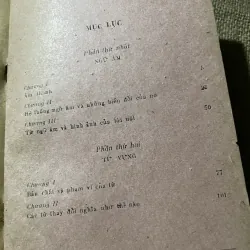 MỤC LỤC
Phần thứ nhất
NGỮ ÂM
Chương I
Chương II
Hệ thống ngữ âm và những biến đổi của nó 26
Chương III
Từ ngữ âm và hình ảnh của lời nói 50
Phần thứ hai
TỪ VỰNG
Chương I
Bản chất và phạm vi của từ 77
Chương II
Các từ thay đổi nghĩa như thế nào 101